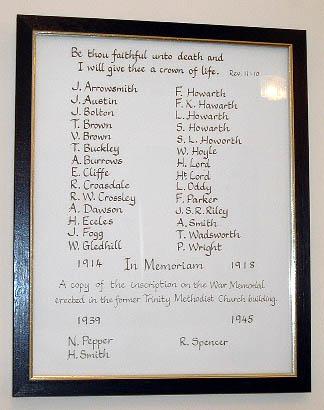 Be thou faithful unto death and
I will give thee a crown of life. Rev. 11-10
J. Arrowsmith
J. Austin
J. Bolton
T. Brown
V. Brown
T. Buckley
A. Burrows
E. Cliffe
R. Croasdale
R. W. Crossley
A. Dawson
H. Eccles
J. Fogg
W. Gledhill
F. Howarth
F. K. Hawarth
L. Howarth
S. Howarth
S. L. Howorth
W. Hoyle
H. Lord
Ht Lord
L. Oddy
F. Parker
J. S. R. Riley
A. Smith
T. Wadsworth
P. Wright
1914 In Memoriam 1918
A copy of the inscription on the War Memorial
erected in the former Trinity Methodist Church building.
1939 1945
N. Pepper R. Spencer
H. Smith